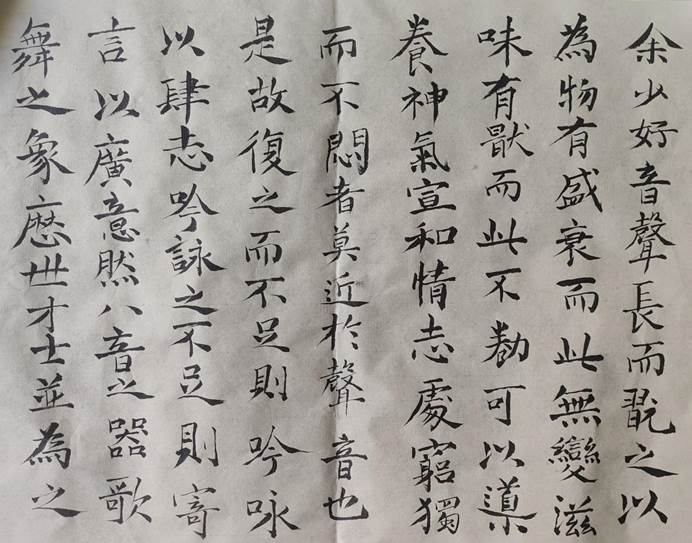 余少好音聲長而翫之以
為物有盛衰而此無變滋
味有猒而此不勌可以導
養神氣宣和情志處窮獨
而不悶者莫近於聲音也
是故復之而不足則吟咏
以肆志吟詠之不足則寄
言以廣意然八音之器歌
舞之象歷世才士並為之